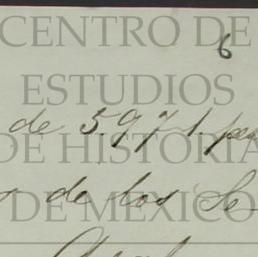 CENTRO DE
6
ESTUDIOS
de 5.971.
DE HISTORIA
de los Se
DE MEXICO